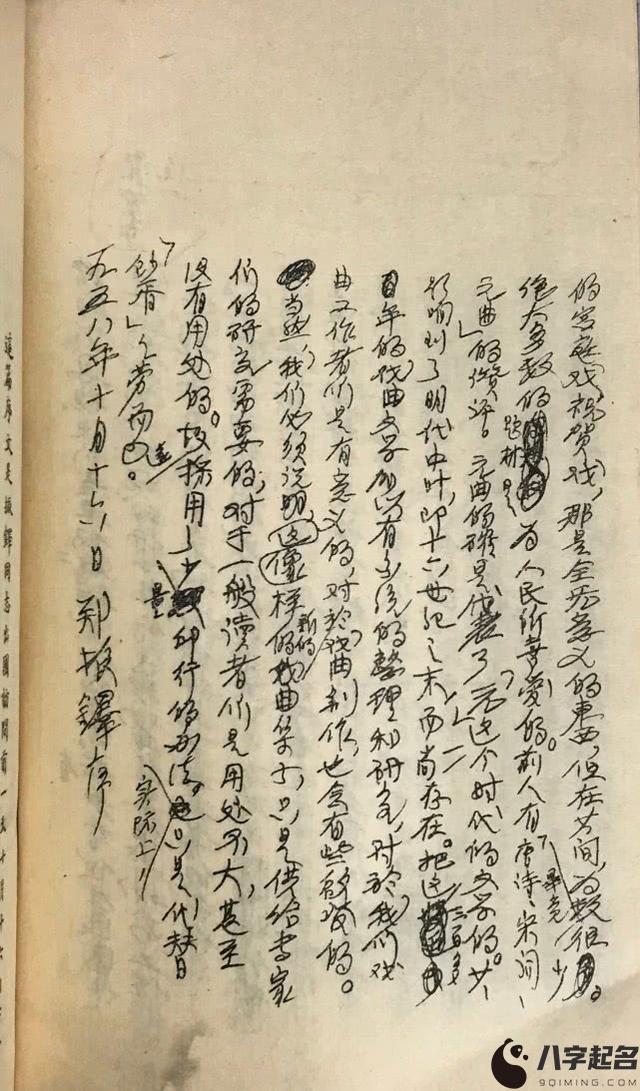 的宫庭戏、祝贺戏，那是全无意义的东西，但在其间，为数毕竟很少。
绝大多数的题材是为人民所喜爱的。前人有「唐诗、宋词、
元曲」的赞评。元曲的确是代表了元这个时代的文学的。其
影响到了明代中叶，即十六世纪之末而尚存在。把这三百多
年的戏曲文学加以有系统的整理和研究，对於我们戏
曲工作者们是有意义的，对於戏曲创作，也会有些帮助的。
当然，我们必须说明，这像样的新的戏曲集子，只是供给专家
们的研究需要的，对于一般读者们是用处不大，甚至
没有用处的。故采用了少量印行的办法。实际上，只是代替
「钞胥」之劳而已。
一九五八年十月十六日 郑振铎序
这篇序文是振铎同志出国访问前一天十月十六日
八字起名
9QIMING.COM